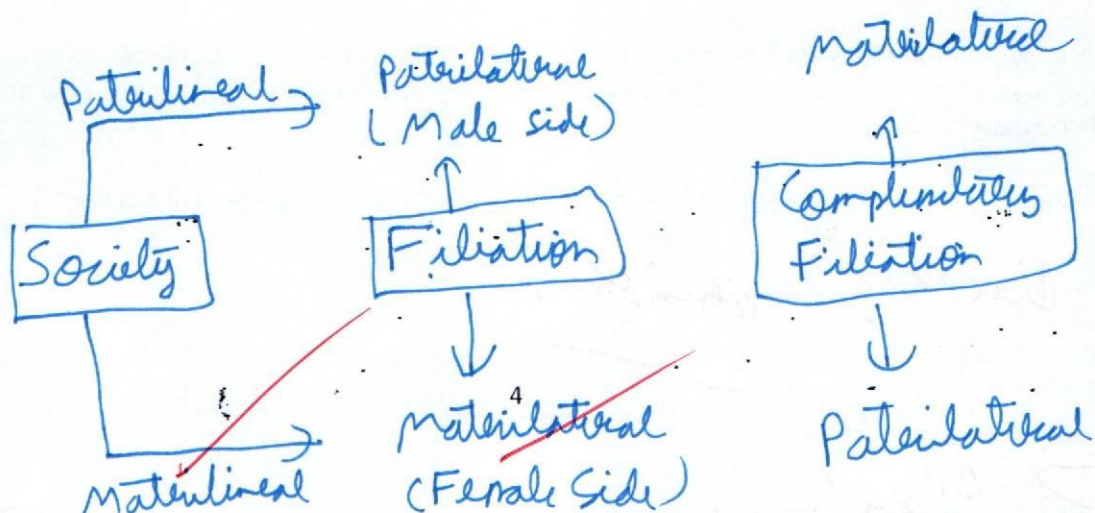 Matrilateral
Patrilineal
Patrilateral
(Male side)
Society
Filiation
Complementary
Filiation
4
Matrilineal
Matrilateral
(Female Side)
Patrilateral